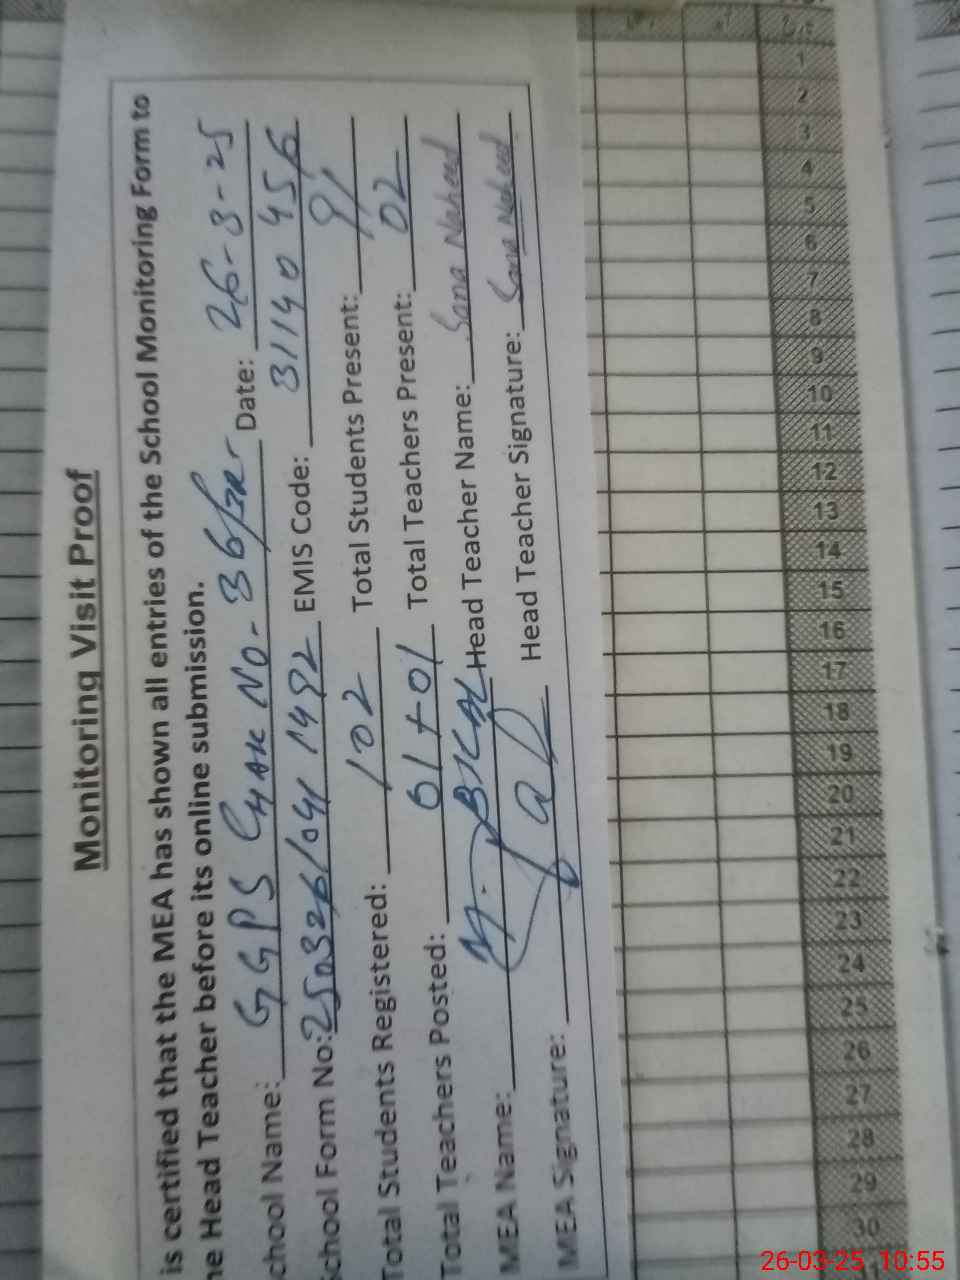 Monitoring Visit Proof
is certified that the MEA has shown all entries of the School Monitoring Form to
he Head Teacher before its online submission.
chool Name: GGPS CHAK NO. 36/2R Date: 26-3-25
School Form No: 2503261041 1492 EMIS Code: 31140 456
Total Students Registered: 102 Total Students Present: 91
Total Teachers Posted: 01+01 Total Teachers Present: 02
MEA Name: M. Head Teacher Name: Sana Naheed
MEA Signature: Head Teacher Signature: Sana Naheed
1
2
3
4
5
6
7
8
9
10
11
12
13
14
15
16
17
18
19
20
21
22
23
24
25
26
27
28
29
30
26-03-25 10:55